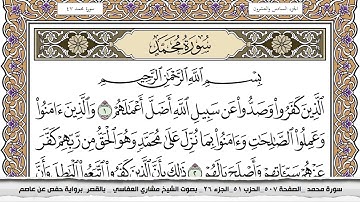 الجزء السادس والعشرون
سورة محمد ٤٧
سُورَةُ مُحَمَّدٍ
بِسْمِ اللَّهِ الرَّحْمَٰنِ الرَّحِيمِ
الَّذِينَ كَفَرُوا وَصَدُّوا عَن سَبِيلِ اللَّهِ أَضَلَّ أَعْمَٰلَهُمْ ١ وَالَّذِينَ ءَامَنُوا
وَعَمِلُوا الصَّٰلِحَٰتِ وَءَامَنُوا بِمَا نُزِّلَ عَلَىٰ مُحَمَّدٍ وَهُوَ الْحَقُّ مِن رَّبِّهِمْ كَفَّرَ
عَنْهُمْ سَيِّـَٔاتِهِمْ وَأَصْلَحَ بَالَهُمْ ٢ ذَٰلِكَ بِأَنَّ الَّذِينَ كَفَرُوا اتَّبَعُوا الْبَٰطِلَ وَأَنَّ
سورة محمد _ الصفحة ٥٠٧ _ الحزب ٥١ _ الجزء ٢٦ _ بصوت الشيخ مشاري العفاسي _ بالقصر _ برواية حفص عن عاصم